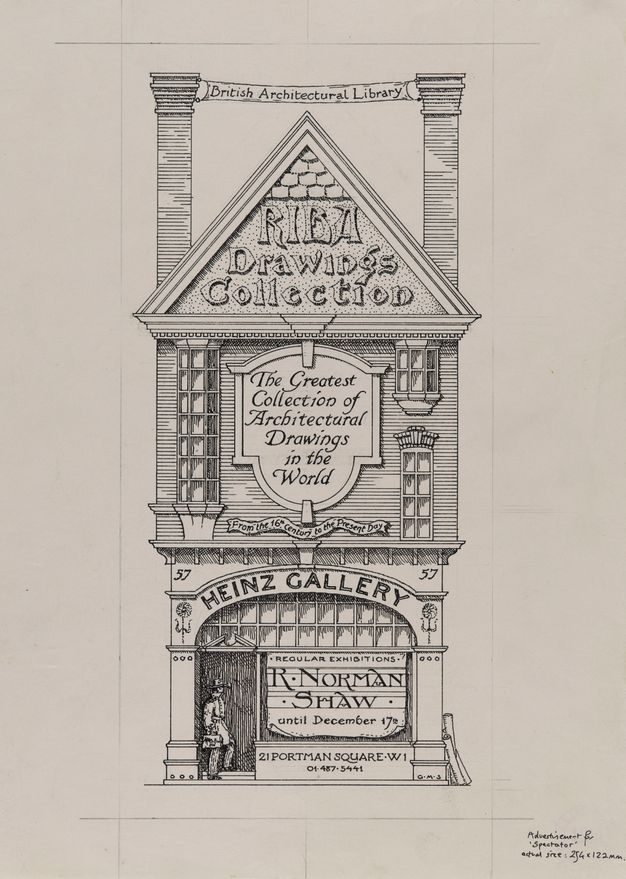 British Architectural Library
RIBA
Drawings
Collection
The Greatest
Collection of
Architectural
Drawings
in the
World
From the 16th century to the Present Day
57
57
HEINZ GALLERY
· REGULAR EXHIBITIONS ·
R·NORMAN
·SHAW·
until December 17th
21 PORTMAN SQUARE·W1
01·487·5441
G·M·S
Advertisement for
'Spectator'
actual size: 254 x 122 mm.